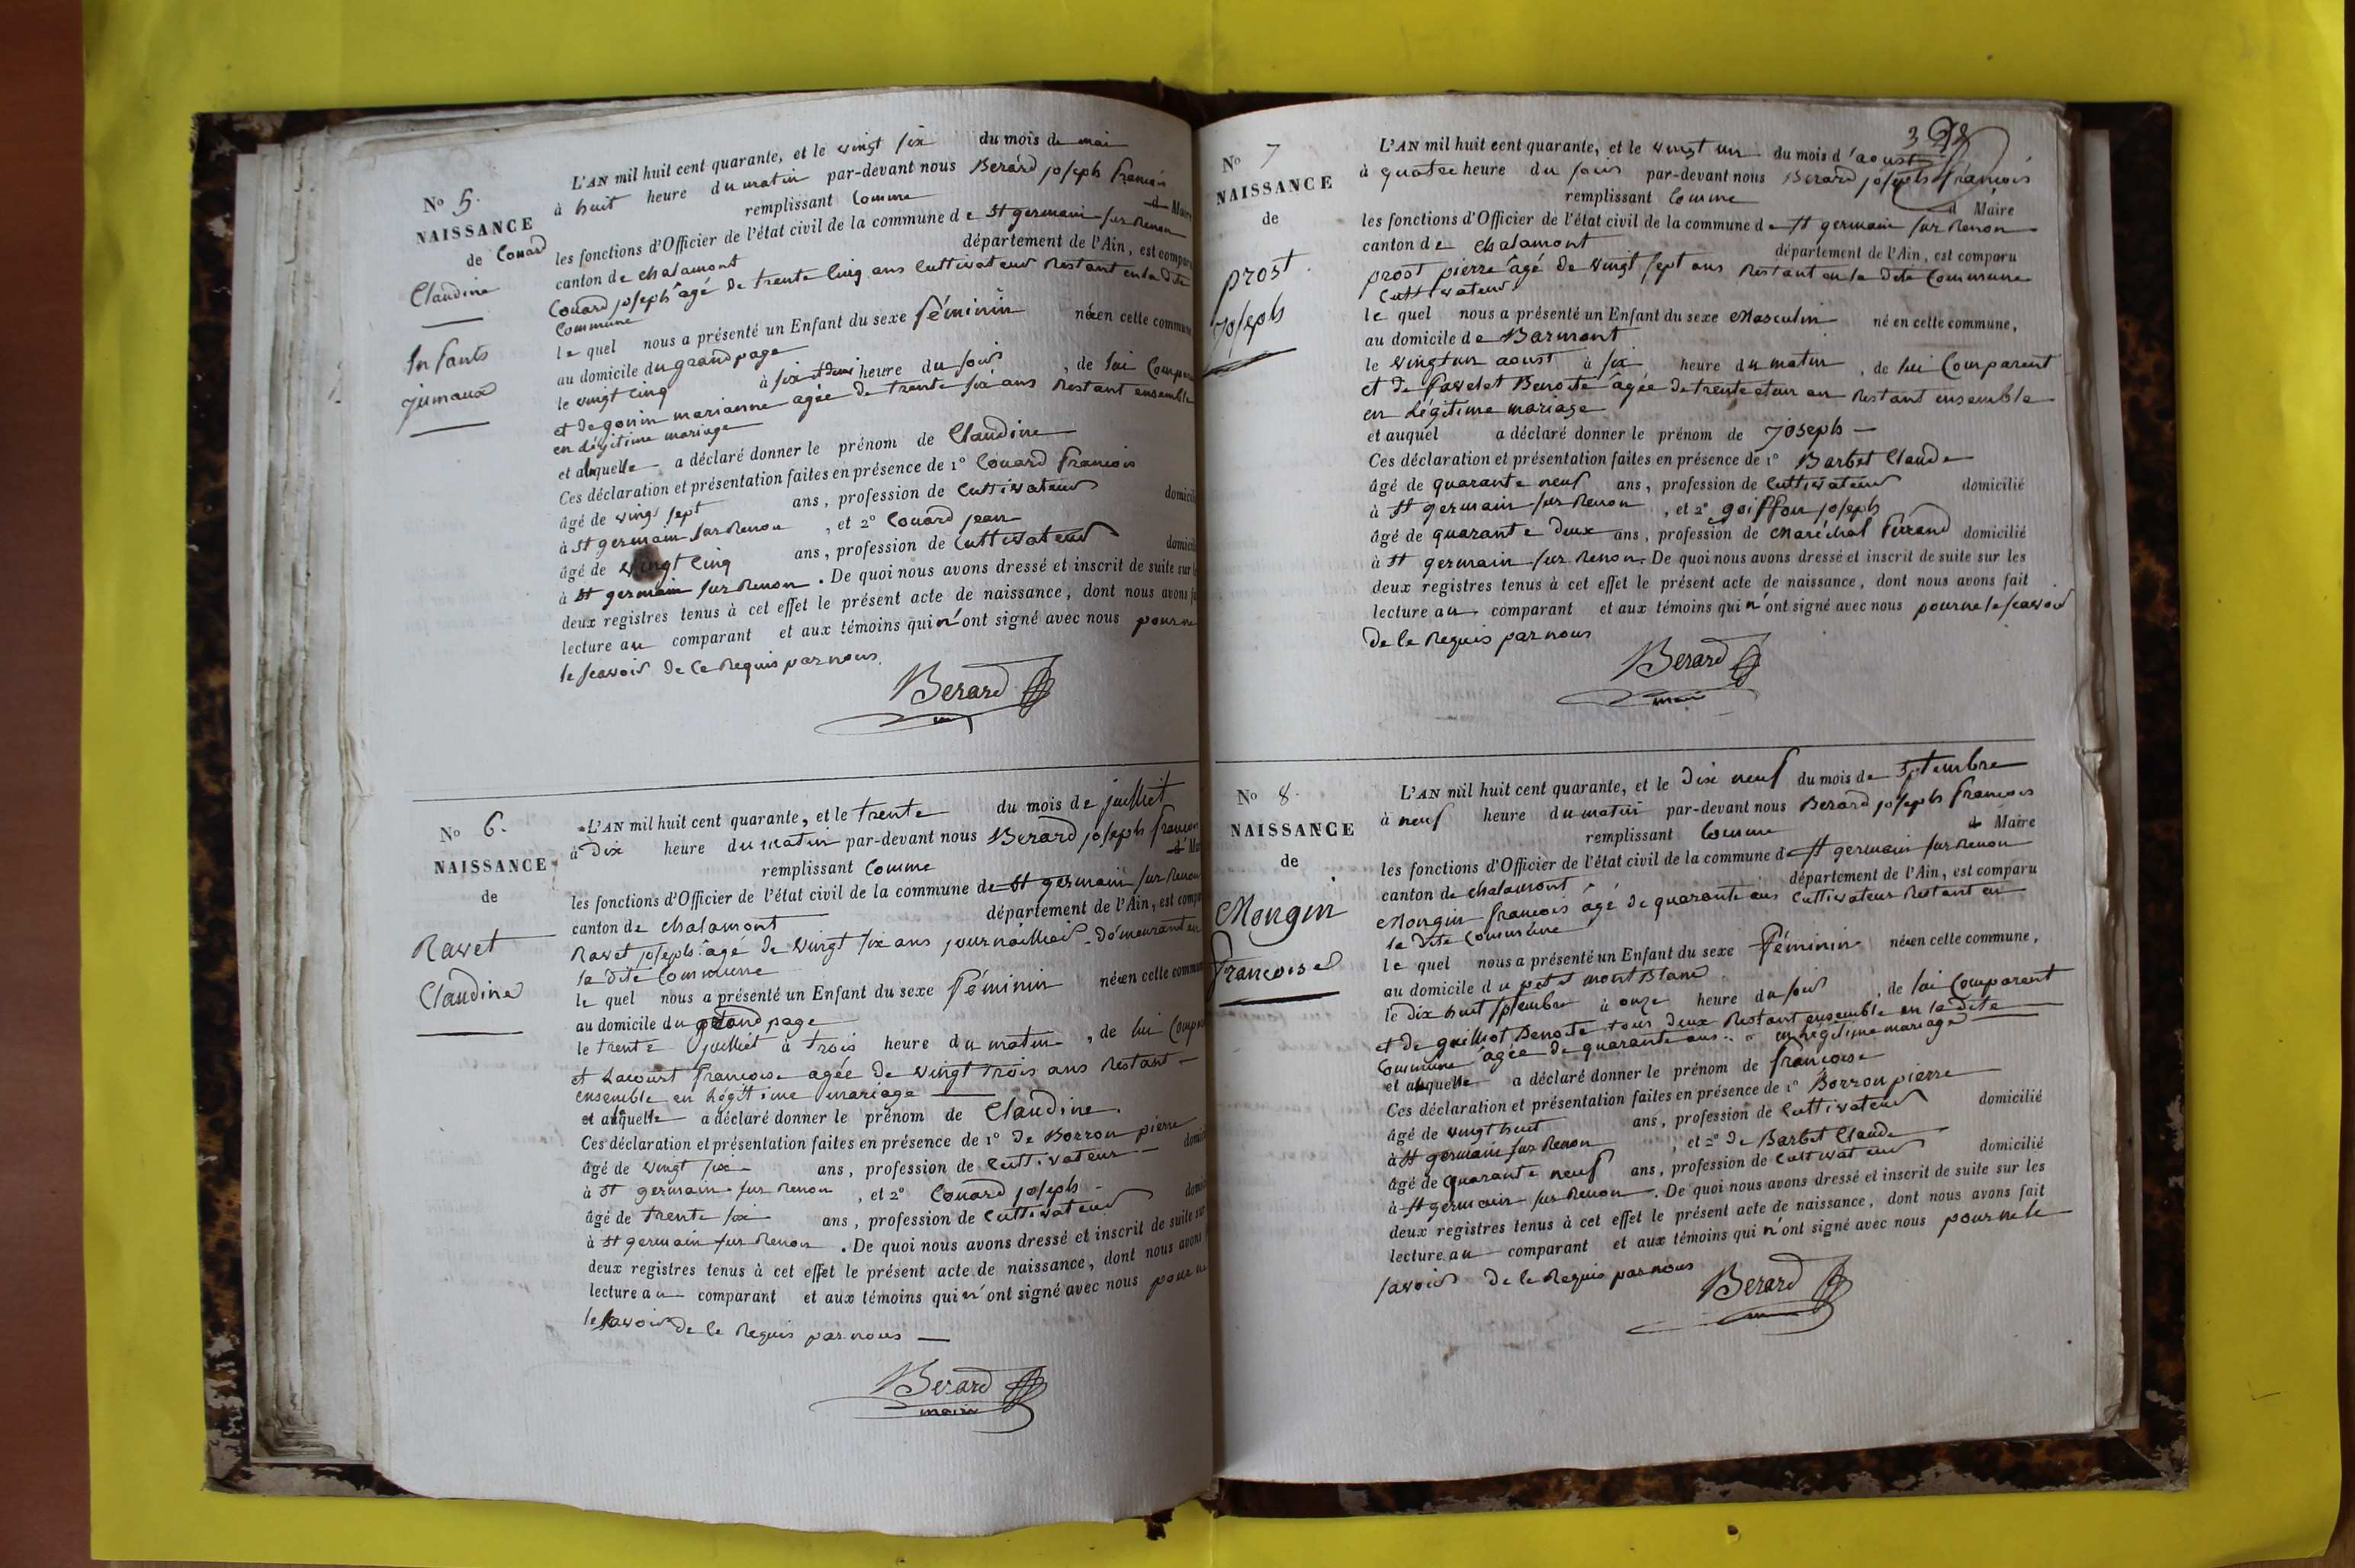 N° 5.
NAISSANCE
de Couard
Claudine
Enfants
jumaux
L'AN mil huit cent quarante, et le vingt six du mois de mai
à huit heure du matin par-devant nous Berard joseph francois
remplissant Comme d Maire
les fonctions d'Officier de l'état civil de la commune de St germain sur Renon
canton de chalamont département de l'Ain, est comparu
Couard joseph agé de trente Cinq ans Cultivateur Restant en la dite
Commune
le quel nous a présenté un Enfant du sexe féminin née en cette commune
au domicile du grand page
le vingt Cinq à six et demi heure du soir, de lui Compa
et de gonin marianne agée de trente six ans Restant ensemble
en Légitime mariage
et alaquelle a déclaré donner le prénom de Claudine
Ces déclaration et présentation faites en présence de 1° Couard francois
âgé de vingt sept ans, profession de Cultivateur domicil
à St germain sur Renon, et 2° Couard jean
âgé de vingt Cinq ans, profession de Cultivateur domicil
à St germain sur Renon. De quoi nous avons dressé et inscrit de suite sur l
deux registres tenus à cet effet le présent acte de naissance, dont nous avons fa
lecture au comparant et aux témoins qui n'ont signé avec nous pour ne
le scavoir de Ce Requis par nous.
Berard
N° 6.
NAISSANCE
de
Ravet
Claudine
L'AN mil huit cent quarante, et le trente du mois de juilliet
à Dix heure du matin par-devant nous Berard joseph francois
remplissant Comme d Mai
les fonctions d'Officier de l'état civil de la commune de St germain sur Renon
canton de chalamont département de l'Ain, est compa
Ravet joseph agé de vingt six ans journaillier Démeurant en
la dite Commune
le quel nous a présenté un Enfant du sexe féminin née en cette commun
au domicile du grand page
le trente juilliet à trois heure du matin, de lui Compa
et Lacourt francoise agée de vingt trois ans Restant
ensemble en Légitime mariage
et alaquelle a déclaré donner le prénom de Claudine.
Ces déclaration et présentation faites en présence de 1° de Borron pierre
âgé de vingt six ans, profession de Cultivateur domici
à St germain sur Renon, et 2° Couard joseph
âgé de trente six ans, profession de Cultivateur domic
à St germain sur Renon. De quoi nous avons dressé et inscrit de suite sur
deux registres tenus à cet effet le présent acte de naissance, dont nous avons f
lecture au comparant et aux témoins qui n'ont signé avec nous pour ne
le savoir de Ce Requis par nous
Berard
maire
N° 7
NAISSANCE
de
prost
joseph
L'AN mil huit cent quarante, et le vingt un du mois d'aoust
à quatre heure du soir par-devant nous Berard joseph francois
remplissant Comme d Maire
les fonctions d'Officier de l'état civil de la commune de St germain sur Renon
canton de chalamont département de l'Ain, est comparu
prost pierre agé de vingt sept ans Restant en la dite Commune
Cultivateur
le quel nous a présenté un Enfant du sexe Masculin né en cette commune,
au domicile de Barmont
le vingt un aoust à six heure du matin, de lui Comparent
et de favelet Benoite agée de trente et un an Restant ensemble
en Légitime mariage
et auquel a déclaré donner le prénom de Joseph
Ces déclaration et présentation faites en présence de 1° Barbet Claude
âgé de quarante neuf ans, profession de Cultivateur domicilié
à St germain sur Renon, et 2° goiffon joseph
âgé de quarante Deux ans, profession de Maréchal ferrand domicilié
à St germain sur Renon. De quoi nous avons dressé et inscrit de suite sur les
deux registres tenus à cet effet le présent acte de naissance, dont nous avons fait
lecture au comparant et aux témoins qui n'ont signé avec nous pour ne le scavoir
de Ce Requis par nous
Berard
maire
N° 8.
NAISSANCE
de
Mongin
francoise
L'AN mil huit cent quarante, et le Dix neuf du mois de Septembre
à neuf heure du matin par-devant nous Berard joseph francois
remplissant Comme d Maire
les fonctions d'Officier de l'état civil de la commune de St germain sur Renon
canton de chalamont département de l'Ain, est comparu
Mongin francois agé de quarante ans Cultivateur Restant en
la dite Commune
le quel nous a présenté un Enfant du sexe féminin née en cette commune,
au domicile du petit mont Blanc
le dix huit septembre à onze heure du soir, de lui Comparent
et de guilliot Benoite tous deux Restant ensemble en la dite
Commune agée de quarante ans en Légitime mariage
et alaquelle a déclaré donner le prénom de francoise
Ces déclaration et présentation faites en présence de 1° Borron pierre
âgé de vingt huit ans, profession de Cultivateur domicilié
à St germain sur Renon, et 2° de Barbet Claude
âgé de quarante neuf ans, profession de Cultivateur domicilié
à St germain sur Renon. De quoi nous avons dressé et inscrit de suite sur les
deux registres tenus à cet effet le présent acte de naissance, dont nous avons fait
lecture au comparant et aux témoins qui n'ont signé avec nous pour ne le
savoir de Ce Requis par nous
Berard